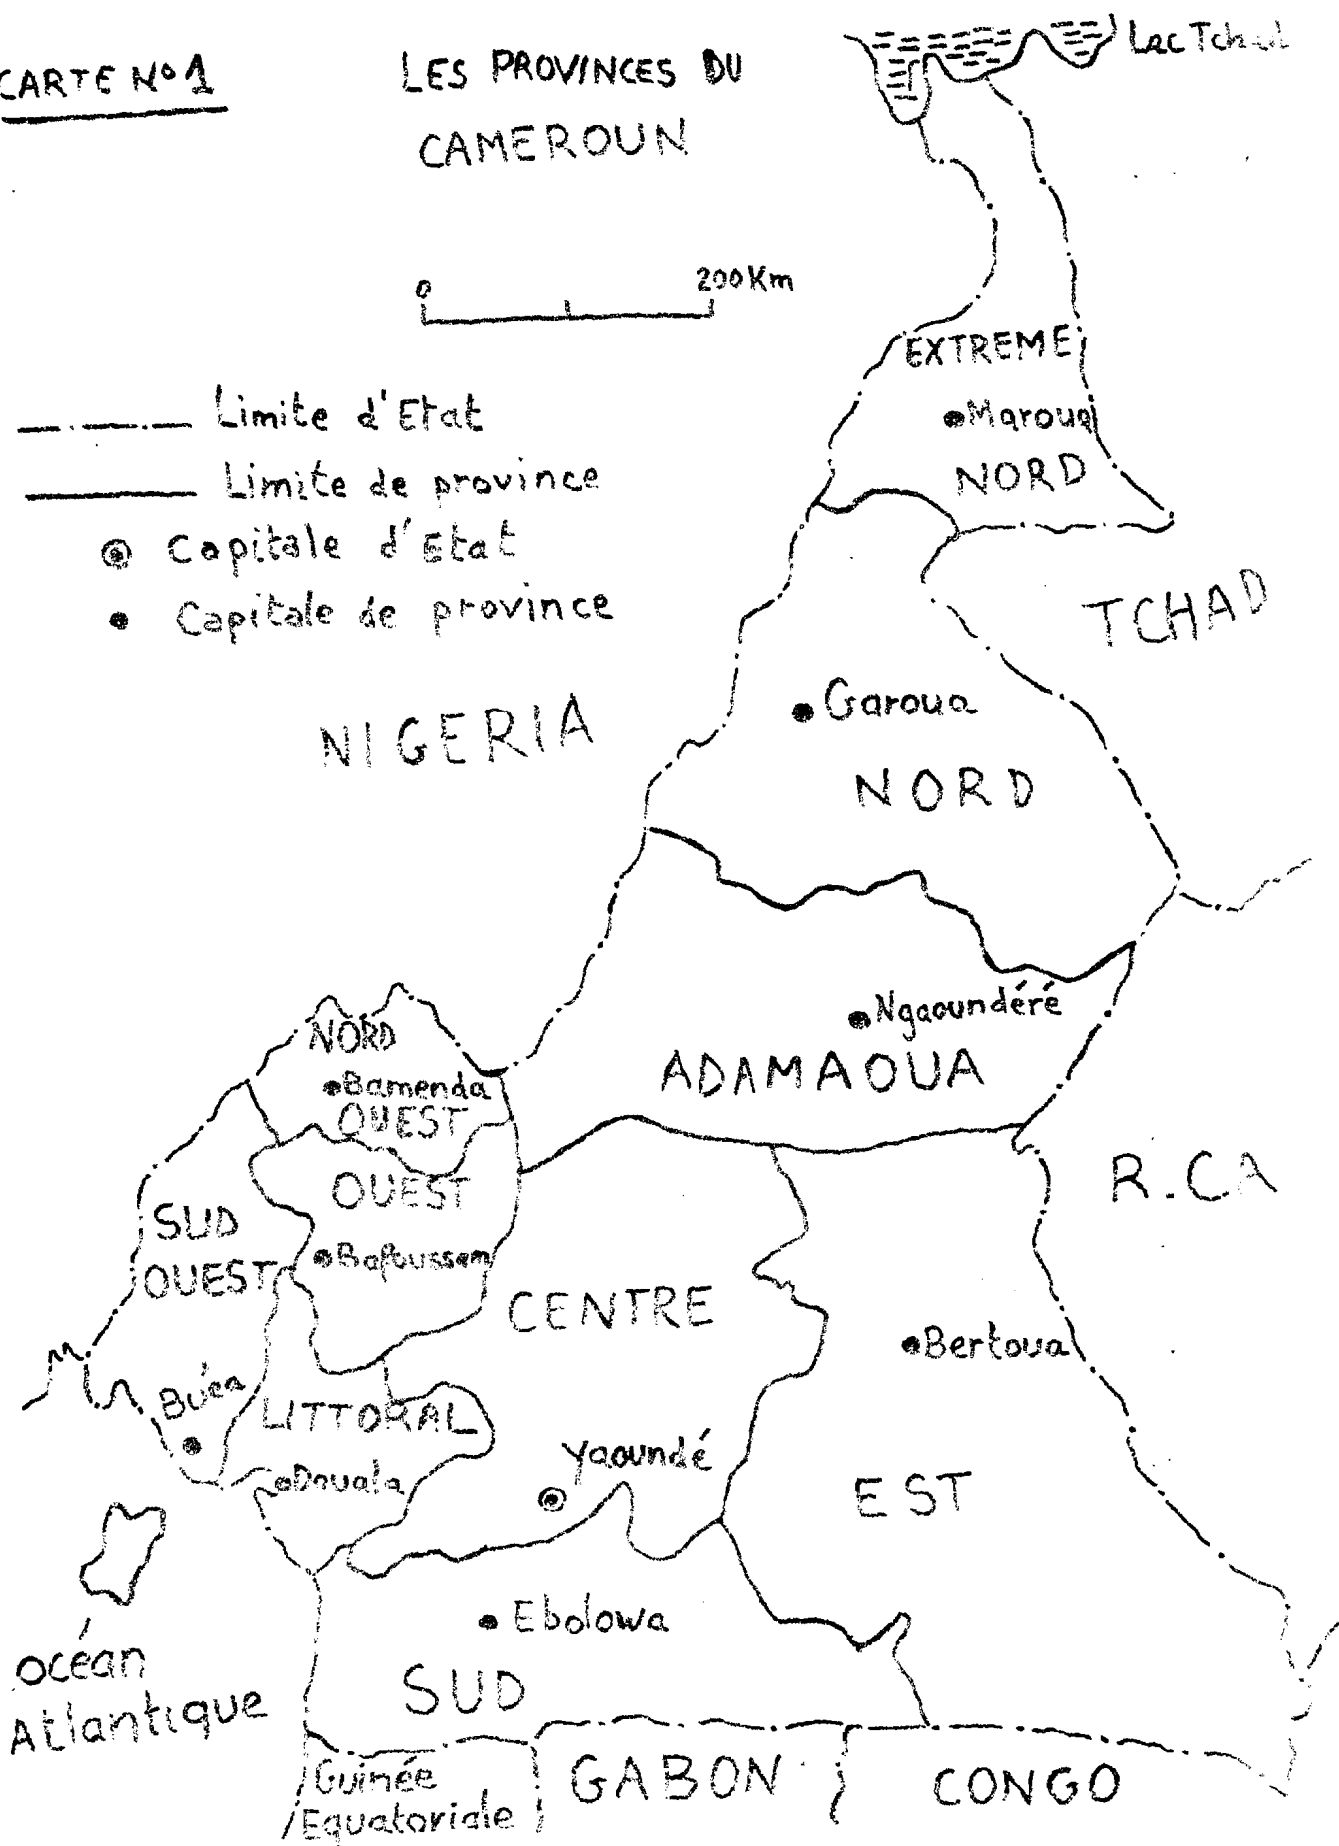 CARTE N° 1
LES PROVINCES DU
CAMEROUN
Lac Tchad
0
200 Km
Limite d'Etat
Limite de province
Capitale d'Etat
Capitale de province
EXTREME
Maroua
NORD
TCHAD
NIGERIA
Garoua
NORD
Ngaoundéré
ADAMAOUA
NORD
Bamenda
OUEST
OUEST
Bafoussam
SUD
OUEST
CENTRE
R.CA
Bertoua
EST
Buéa
LITTORAL
Douala
Yaoundé
Ebolowa
SUD
océan
Atlantique
Guinée
Equatoriale
GABON
CONGO